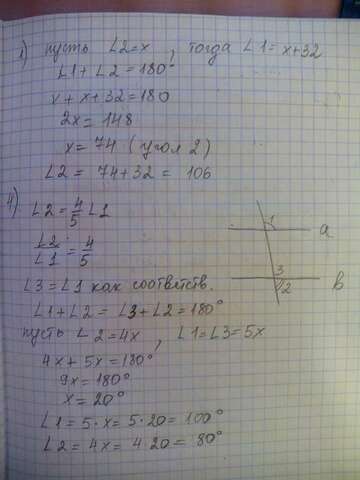 1) пусть ∠2=x, тогда ∠1=x+32
∠1+∠2=180°
x+x+32=180
2x=148
x=74 (угол 2)
∠2 = 74+32 = 106
4) ∠2=4/5∠1
∠2/∠1=4/5
∠3=∠1 как соответств.
∠1+∠2=∠3+∠2=180°
пусть ∠2=4x, ∠1=∠3=5x
4x+5x=180°
9x=180°
x=20°
∠1=5·x=5·20=100°
∠2=4x=4·20=80°
1
a
3
2
b